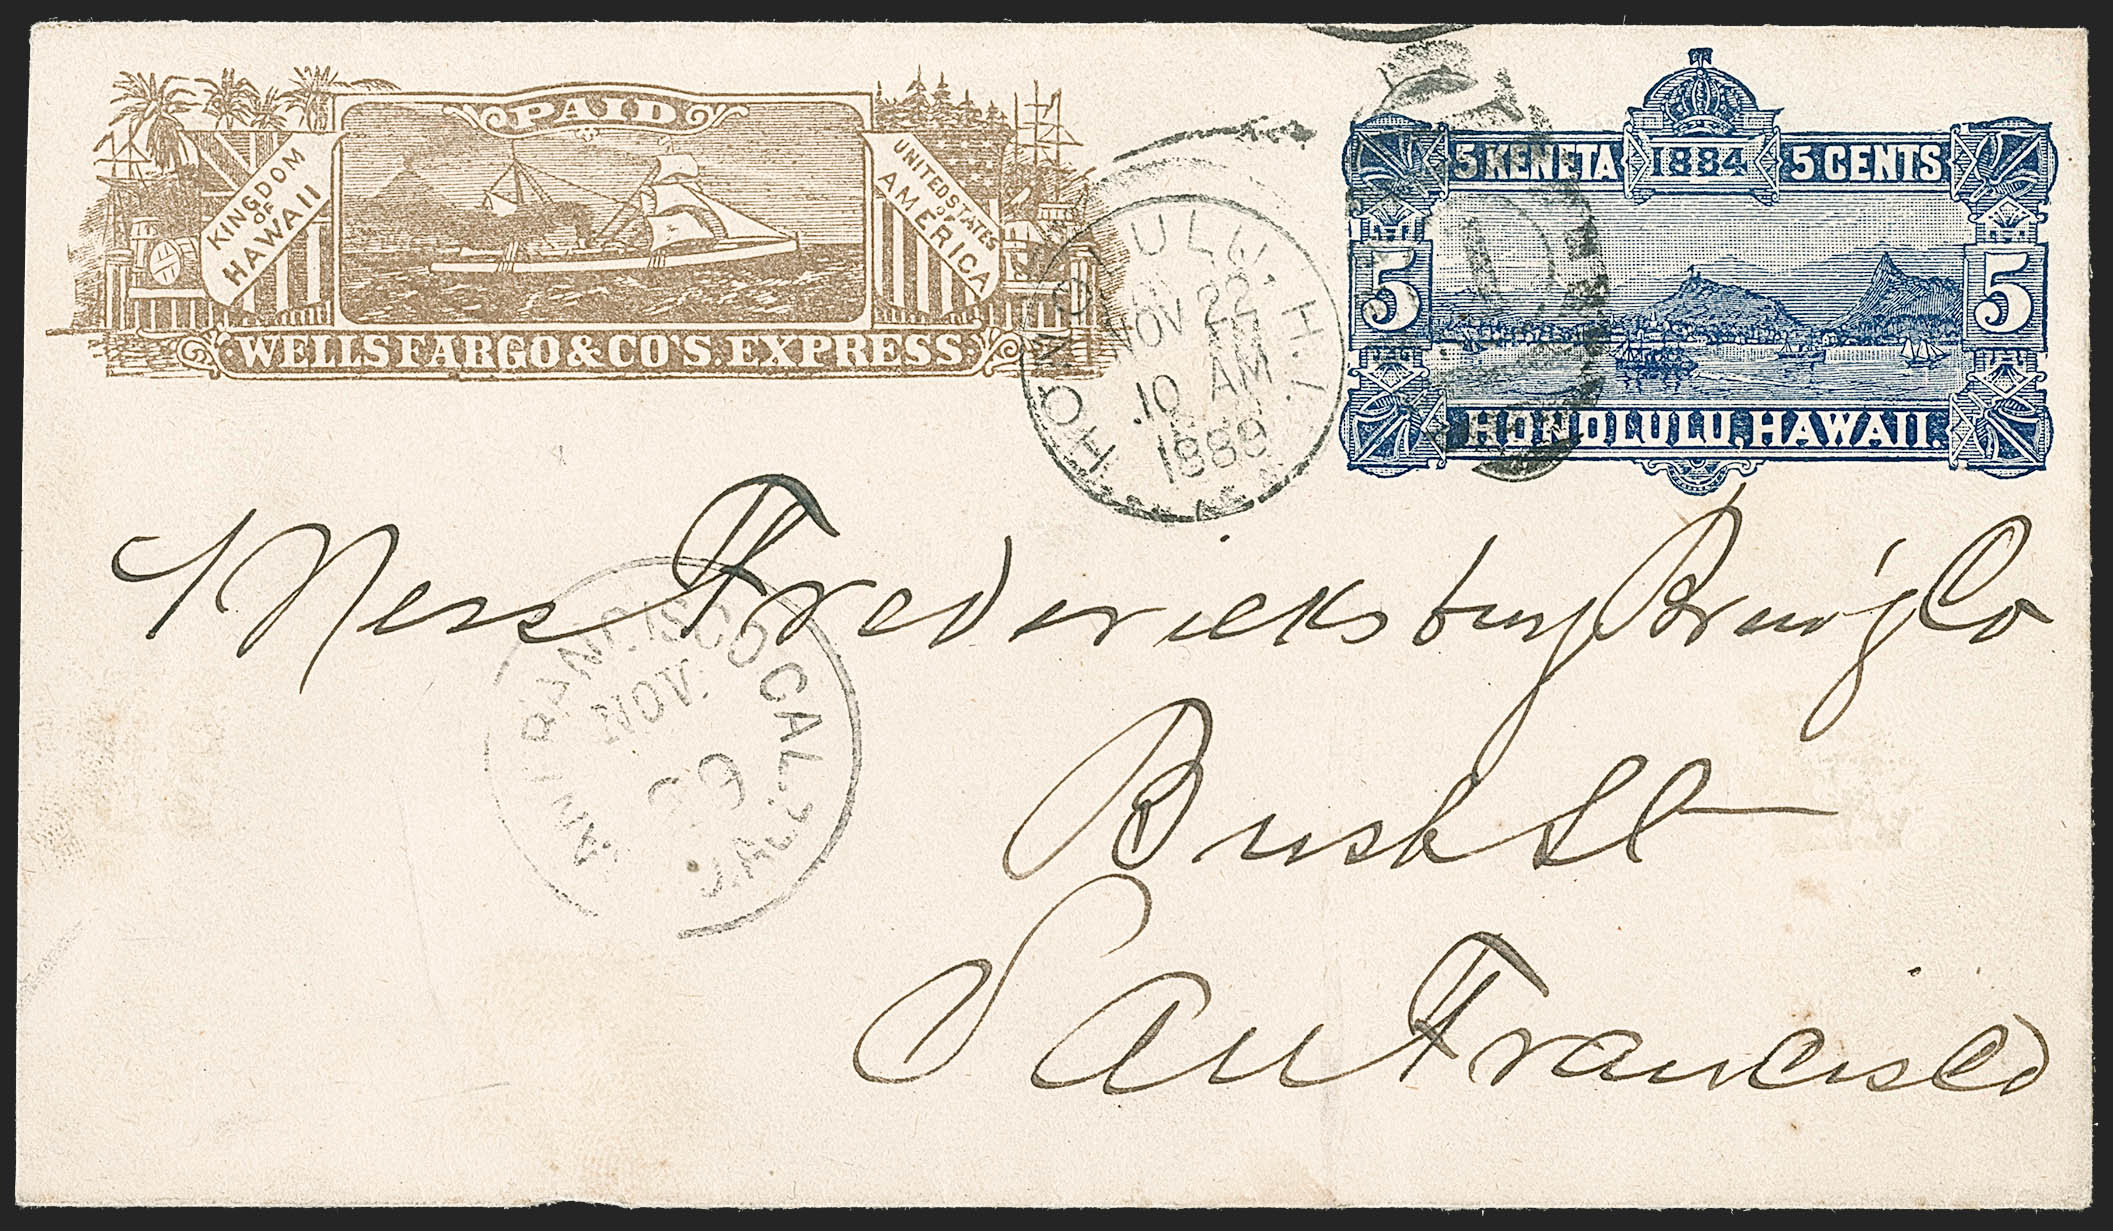 PAID
KINGDOM
OF
HAWAII
UNITED STATES
OF
AMERICA
WELLS FARGO & CO'S. EXPRESS.
5 KENETA 1884 5 CENTS
5 5
HONOLULU, HAWAII.
HONOLULU, H. I.
NOV 22
10 AM
1889
Mess Fredericksburg Brew'g Co
Bush St
San Francisco
SAN FRANCISCO CAL.
NOV.
U.S.A.